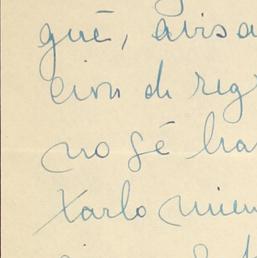 qué, avisa
cion de reg
no sé ha
Xarlo mien